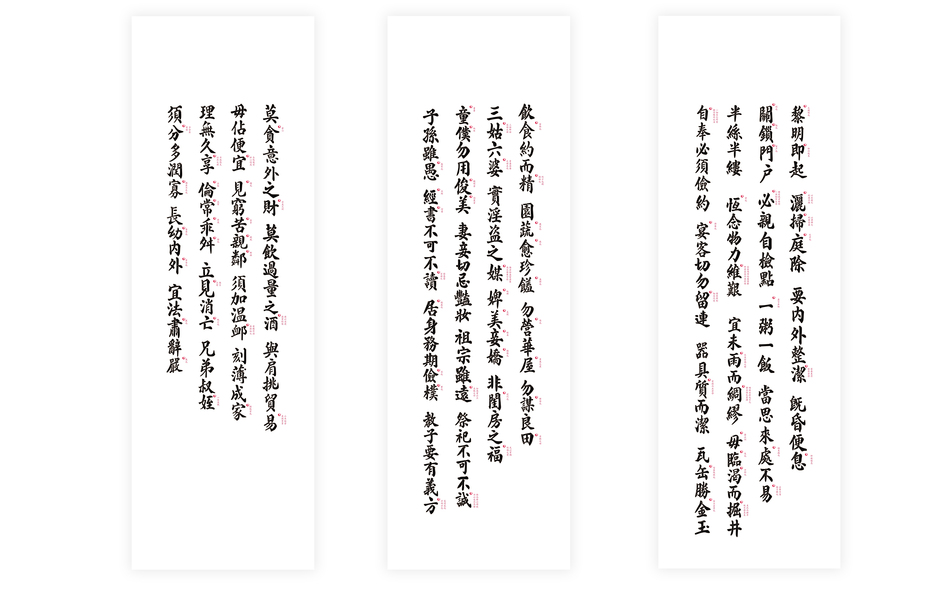 黎明即起 灑掃庭除 要內外整潔 既昏便息
關鎖門户 必親自檢點 一粥一飯 當思來處不易
半絲半縷 恆念物力維艱 宜未雨而綢繆 毋臨渴而掘井
自奉必須儉約 宴客切勿留連 器具質而潔 瓦缶勝金玉
飲食約而精 園蔬愈珍饈 勿營華屋 勿謀良田
三姑六婆 實淫盜之媒 婢美妾嬌 非閨房之福
童僕勿用俊美 妻妾切忌豔妝 祖宗雖遠 祭祀不可不誠
子孫雖愚 經書不可不讀 居身務期儉樸 教子要有義方
莫貪意外之財 莫飲過量之酒 與肩挑貿易
毋佔便宜 見窮苦親鄰 須加温卹 刻薄成家
理無久享 倫常乖舛 立見消亡 兄弟叔姪
須分多潤寡 長幼內外 宜法肅辭嚴